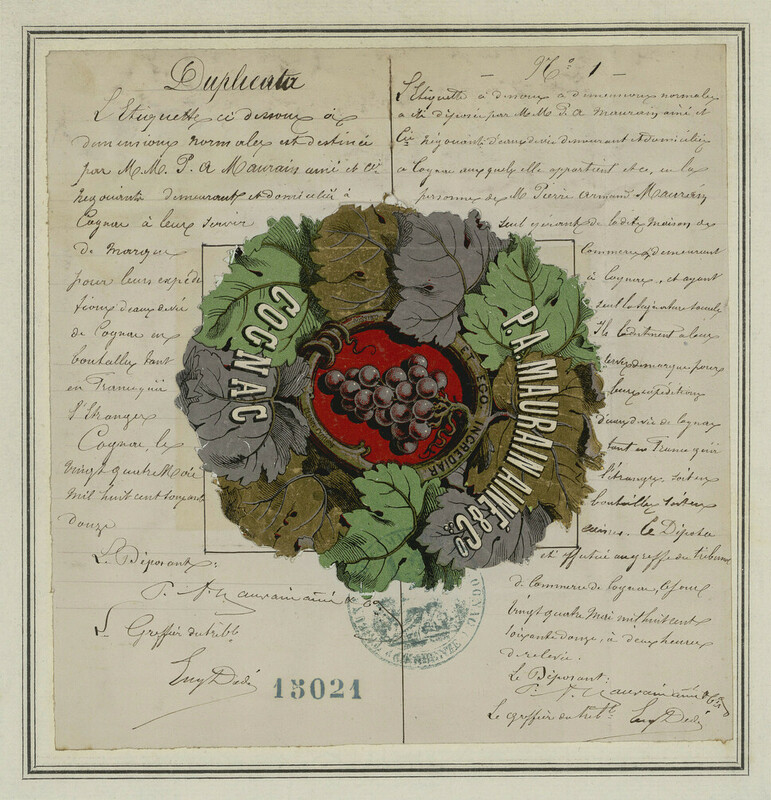 Duplicata
L'Etiquette ci dessous à
dimensions normales est destinée
par M.M. P. A Maurain ainé et Cie
négociants demeurant et domiciliés à
Cognac à leurs servir
de marque
pour leurs expédi
tions d'eaux de vie
de Cognac en
bouteilles tant
en France qu'à
l'étranger
Cognac, le
vingt quatre Mai
mil huit cent soixante
douze
Le Déposant:
P. A. Maurain ainé & Co
Le Greffier du trib.
Eug Dedé
15021
COGNAC
P.A. MAURAIN AINÉ & Co.
ET EGO INCREDIAR
No 1
L'Etiquette ci dessous à dimensions normales
a été déposée par M.M. P. A Maurain ainé et
Cie négociants d'eaux de vie demeurant et domiciliés
à Cognac auxquels elle appartient et ce, en la
personne de M. Pierre Armand Maurain
seul gérant de la dite maison de
Commerce, demeurant
à Cognac, et ayant
seul la signature sociale
Ils la destinent à leur
servir de marque pour
leurs expéditions
d'eaux de vie de Cognac
tant en France qu'à
l'étranger, soit en
bouteilles soit en
caisses. Le Dépôt a
été effectué au greffe du tribunal
de Commerce de Cognac, ce jour
vingt quatre Mai mil huit cent
soixante douze, à deux heures
de relevée.
Le Déposant:
P. A. Maurain ainé & Cie
Le greffier du trib.
Eug Dedé